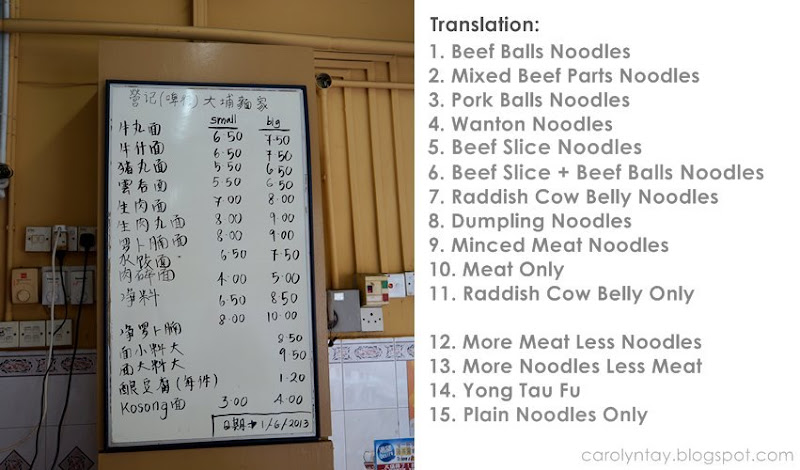 營记 大埔麵家
small big
牛丸面 6.50 7.50
牛什面 6.50 7.50
猪丸面 5.50 6.50
雲吞面 5.50 6.50
生肉面 7.00 8.00
生肉丸面 8.00 9.00
萝卜腩面 8.00 9.00
水饺面 6.50 7.50
肉碎面 4.00 5.00
净料 6.50 8.50
净萝卜腩 8.00 10.00
面小料大 8.50
面大料大 9.50
酿豆腐(每件) 1.20
Kosong面 3.00 4.00
日期→1/6/2013
Translation:
1. Beef Balls Noodles
2. Mixed Beef Parts Noodles
3. Pork Balls Noodles
4. Wanton Noodles
5. Beef Slice Noodles
6. Beef Slice + Beef Balls Noodles
7. Raddish Cow Belly Noodles
8. Dumpling Noodles
9. Minced Meat Noodles
10. Meat Only
11. Raddish Cow Belly Only
12. More Meat Less Noodles
13. More Noodles Less Meat
14. Yong Tau Fu
15. Plain Noodles Only
carolyntay.blogspot.com